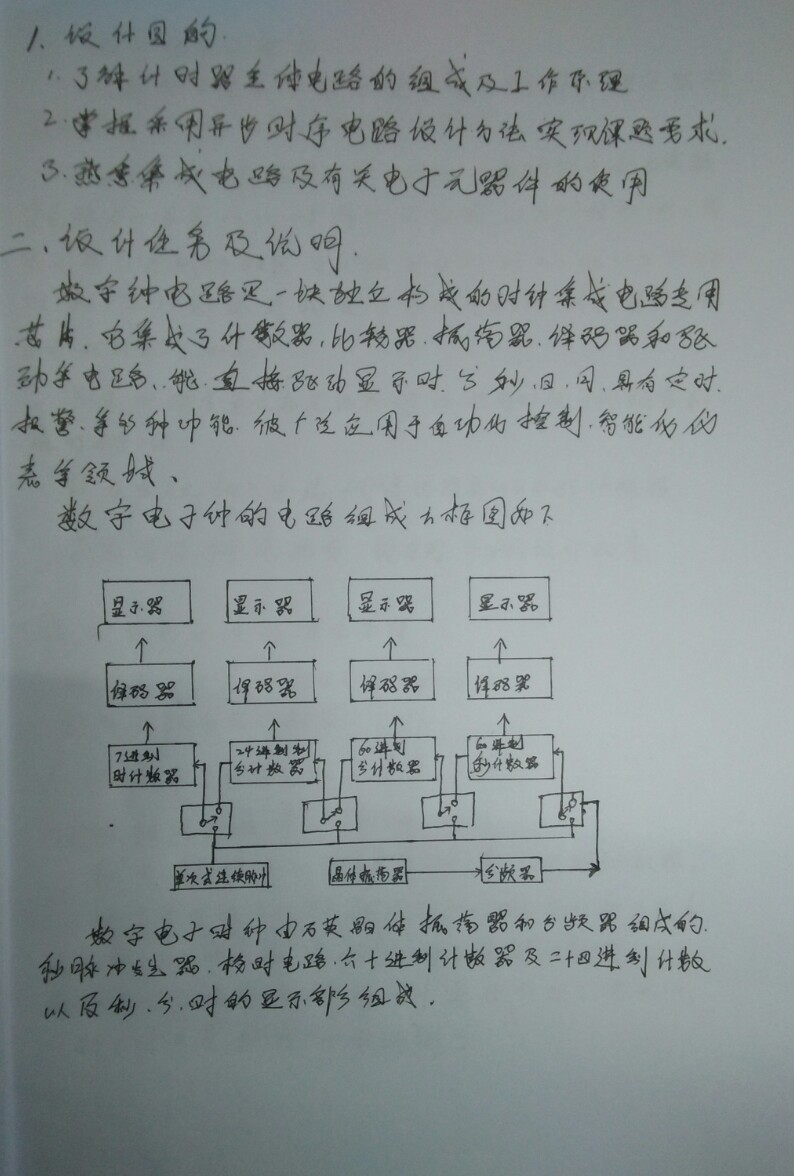 1、设计目的.
1. 了解计时器主体电路的组成及工作原理
2. 掌握采用异步时序电路设计方法实现课题要求.
3. 熟悉集成电路及有关电子元器件的使用
二、设计任务及说明.
数字钟电路是一块独立构成的时钟集成电路专用
芯片. 它集成了计数器,比较器.振荡器.译码器和驱
动等电路、能.直接驱动显示时.分秒,日.周.具有定时.
报警.等多种功能.被广泛应用于自动化控制.智能化仪
表等领域、
数字电子钟的电路组成方框图如下
显示器 显示器 显示器 显示器
译码器 译码器 译码器 译码器
7进制 24进制制 60进制 60进制
时计数器 分计数器 分计数器 秒计数器
单次或连续脉冲 晶体振荡器 分频器
数字电子时钟由石英晶体振荡器和分频器组成的.
秒脉冲发生器.校时电路.六十进制计数器及二十四进制计数
以及秒.分.时的显示部分组成.